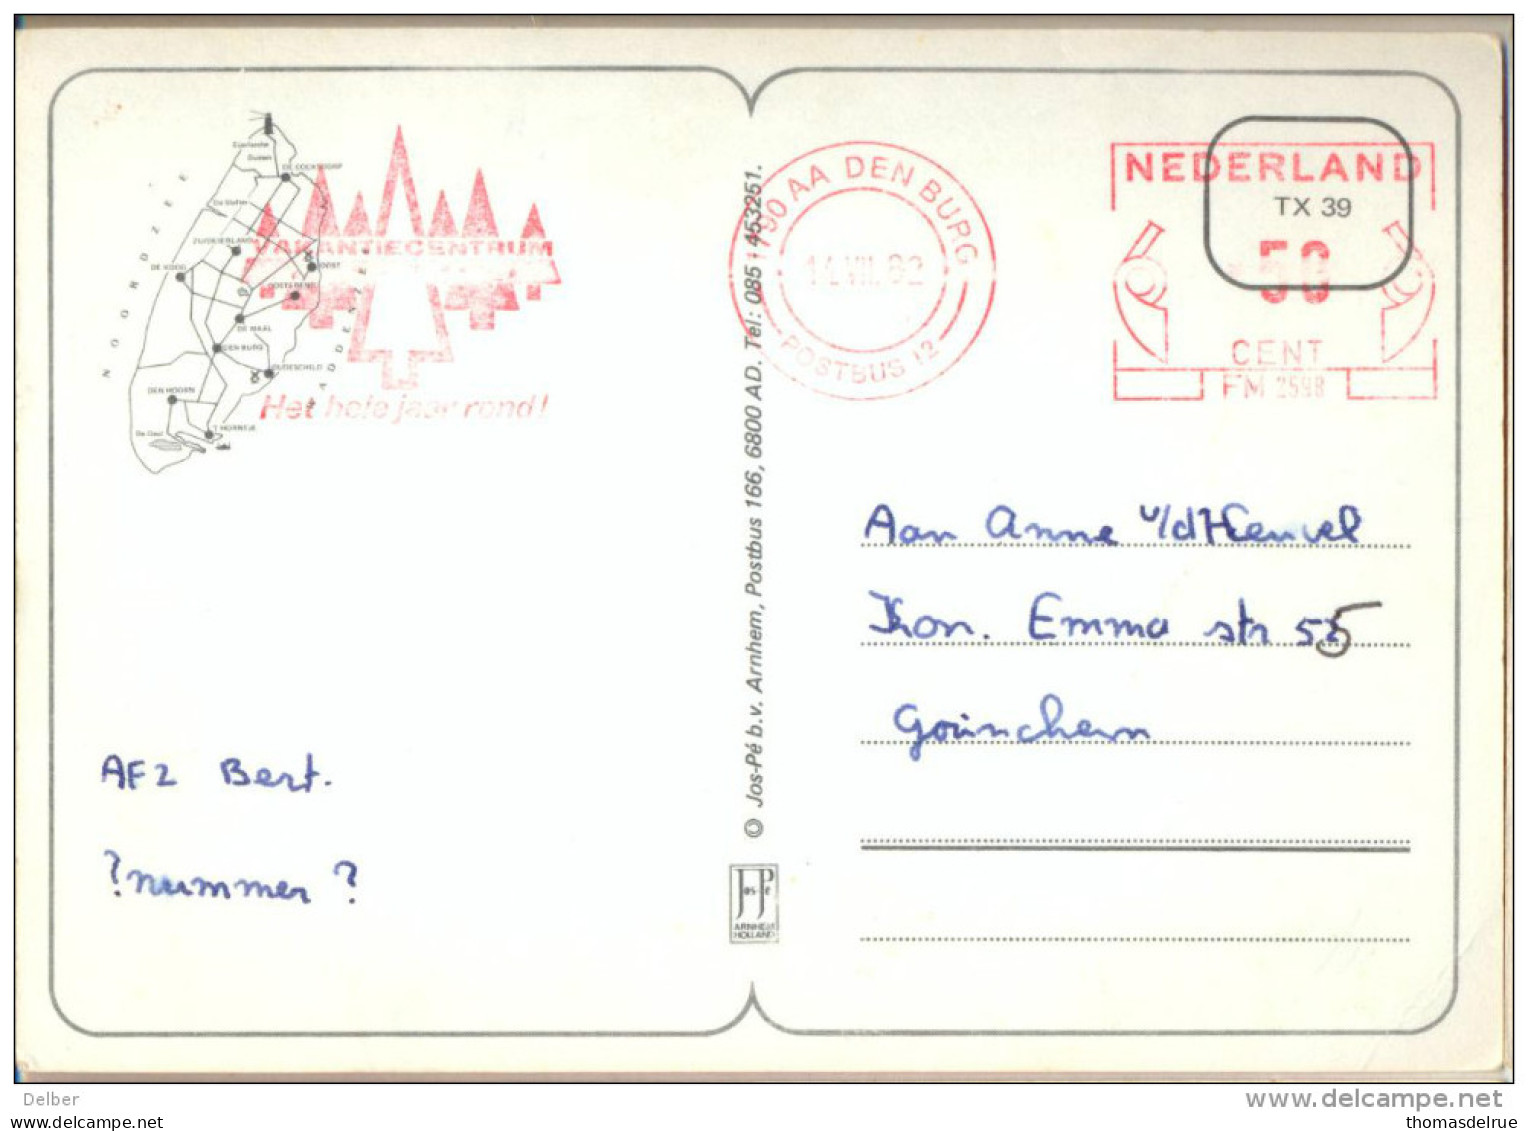 Eierlandse
Duinen
DE COCKSDORP
De Slufter
ZUIDEIERLAND
DE KOOG
OOST
OOSTEREND
DE WAAL
DEN BURG
OUDESCHILD
DEN HOORN
'T HORNTJE
De Geul
NOORDZEE
WADDENZEE
VAKANTIECENTRUM
Het hele jaar rond!
1790 AA DEN BURG
14.VII.82
POSTBUS 12
NEDERLAND
TX 39
50
CENT
FM 2598
© Jos-Pé b.v. Arnhem, Postbus 166, 6800 AD. Tel: 085 - 453251.
Aan Anne v/d Heuvel
Kon. Emma str 55
Gorinchem
AFZ Bert.
?nummer?
Jos-Pe
ARNHEM
HOLLAND
Delber
www.delcampe.net
www.delcampe.com
thomasdelrue